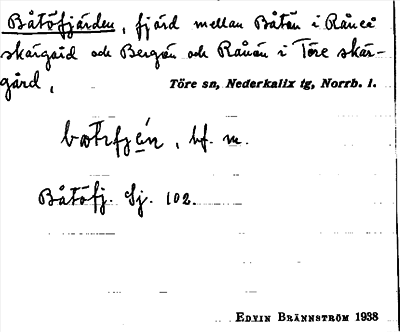 Båtöfjärden, fjärd mellan Båtön i Råneå
skärgård och Bergön och Rånön i Töre skär-
gård,
Töre sn, Nederkalix tg, Norrb. l.
bf. m.
Båtöfj. Sj. 102.
EDVIN BRÄNNSTRÖM 1938